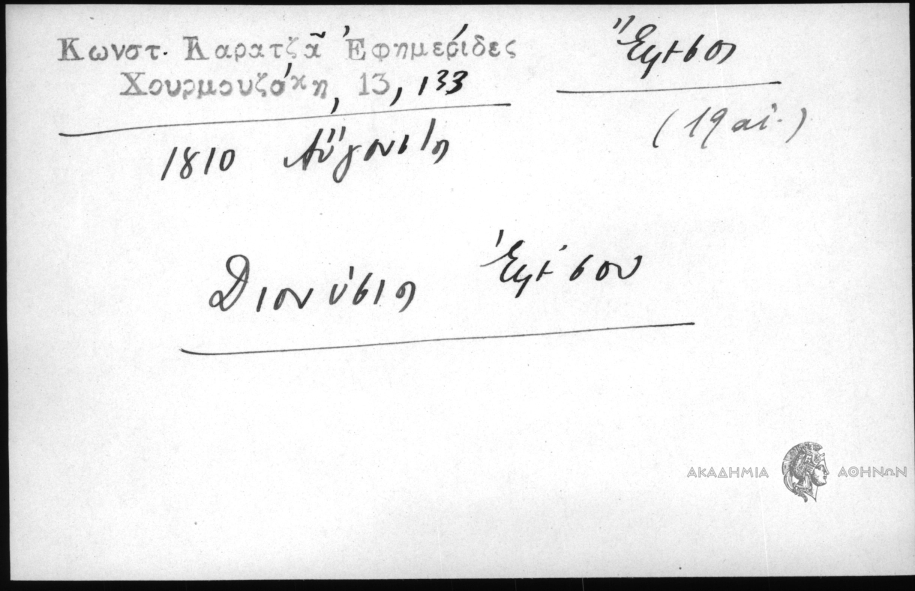 Κωνστ. Καρατζᾶ Ἐφημερίδες
Χουρμουζάκη, 13, 133
Ἔφεσος
(19 αἰ.)
1810 Αὔγουστος
Διονύσιος Ἐφέσου
ΑΚΑΔΗΜΙΑ ΑΘΗΝΩΝ